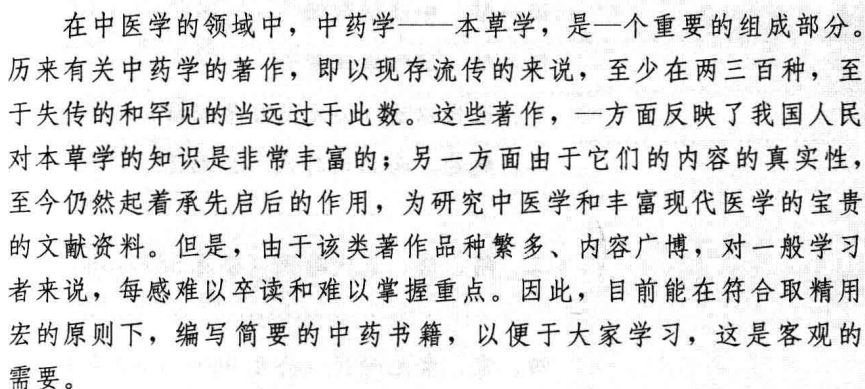 在中医学的领域中，中药学——本草学，是一个重要的组成部分。
历来有关中药学的著作，即以现存流传的来说，至少在两三百种，至
于失传的和罕见的当远过于此数。这些著作，一方面反映了我国人民
对本草学的知识是非常丰富的；另一方面由于它们的内容的真实性，
至今仍然起着承先启后的作用，为研究中医学和丰富现代医学的宝贵
的文献资料。但是，由于该类著作品种繁多、内容广博，对一般学习
者来说，每感难以卒读和难以掌握重点。因此，目前能在符合取精用
宏的原则下，编写简要的中药书籍，以便于大家学习，这是客观的
需要。